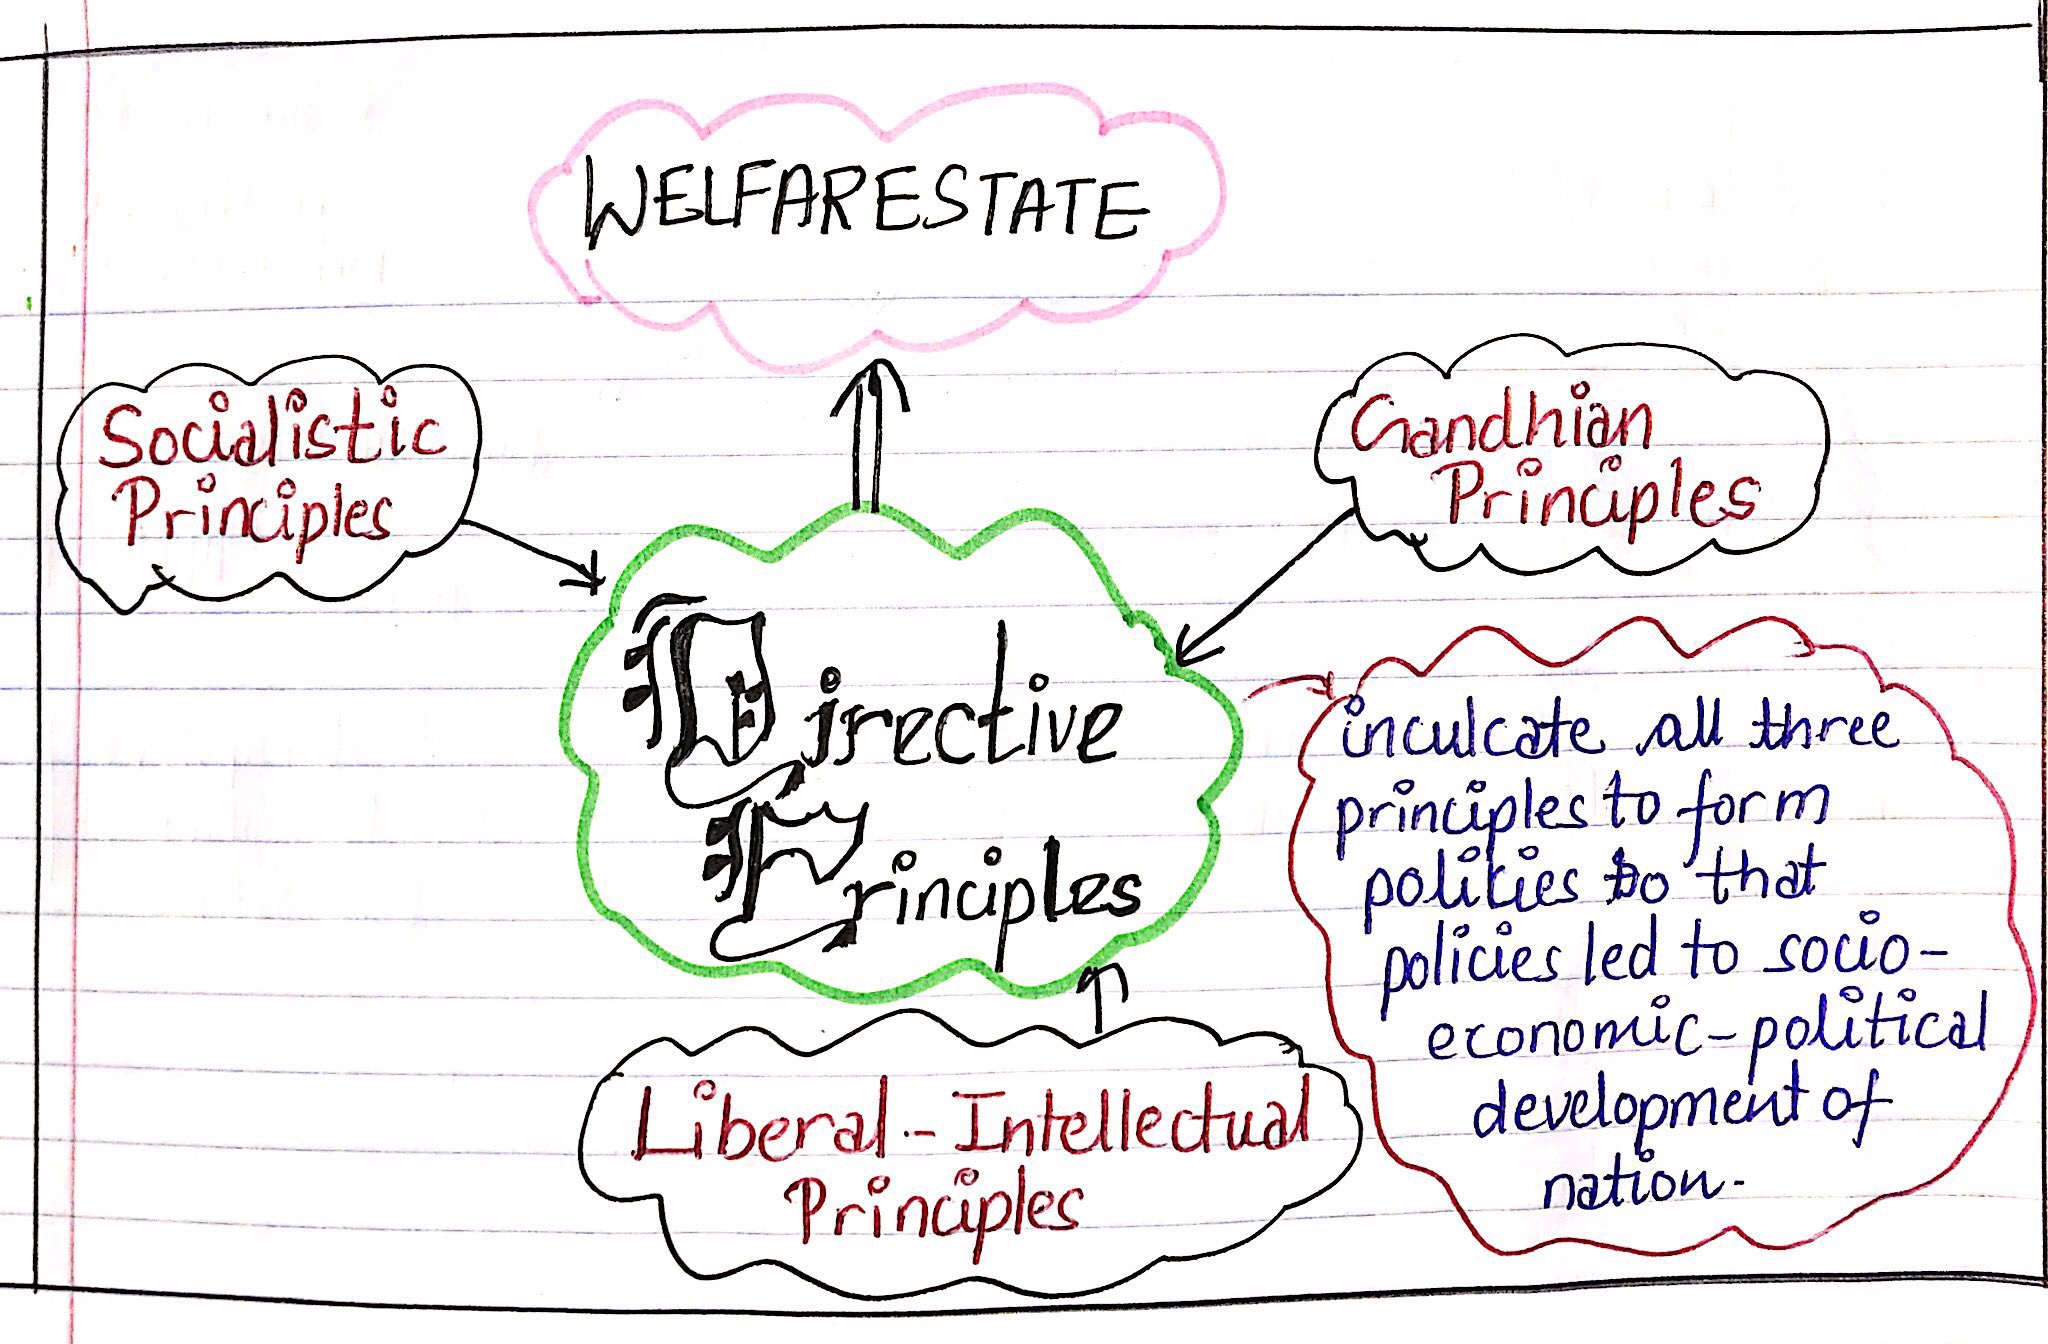 WELFARESTATE
Socialistic
Principles
Gandhian
Principles
Directive
Principles
inculcate all three
principles to form
policies so that
policies led to socio-
economic-political
development of
nation.
Liberal-Intellectual
Principles